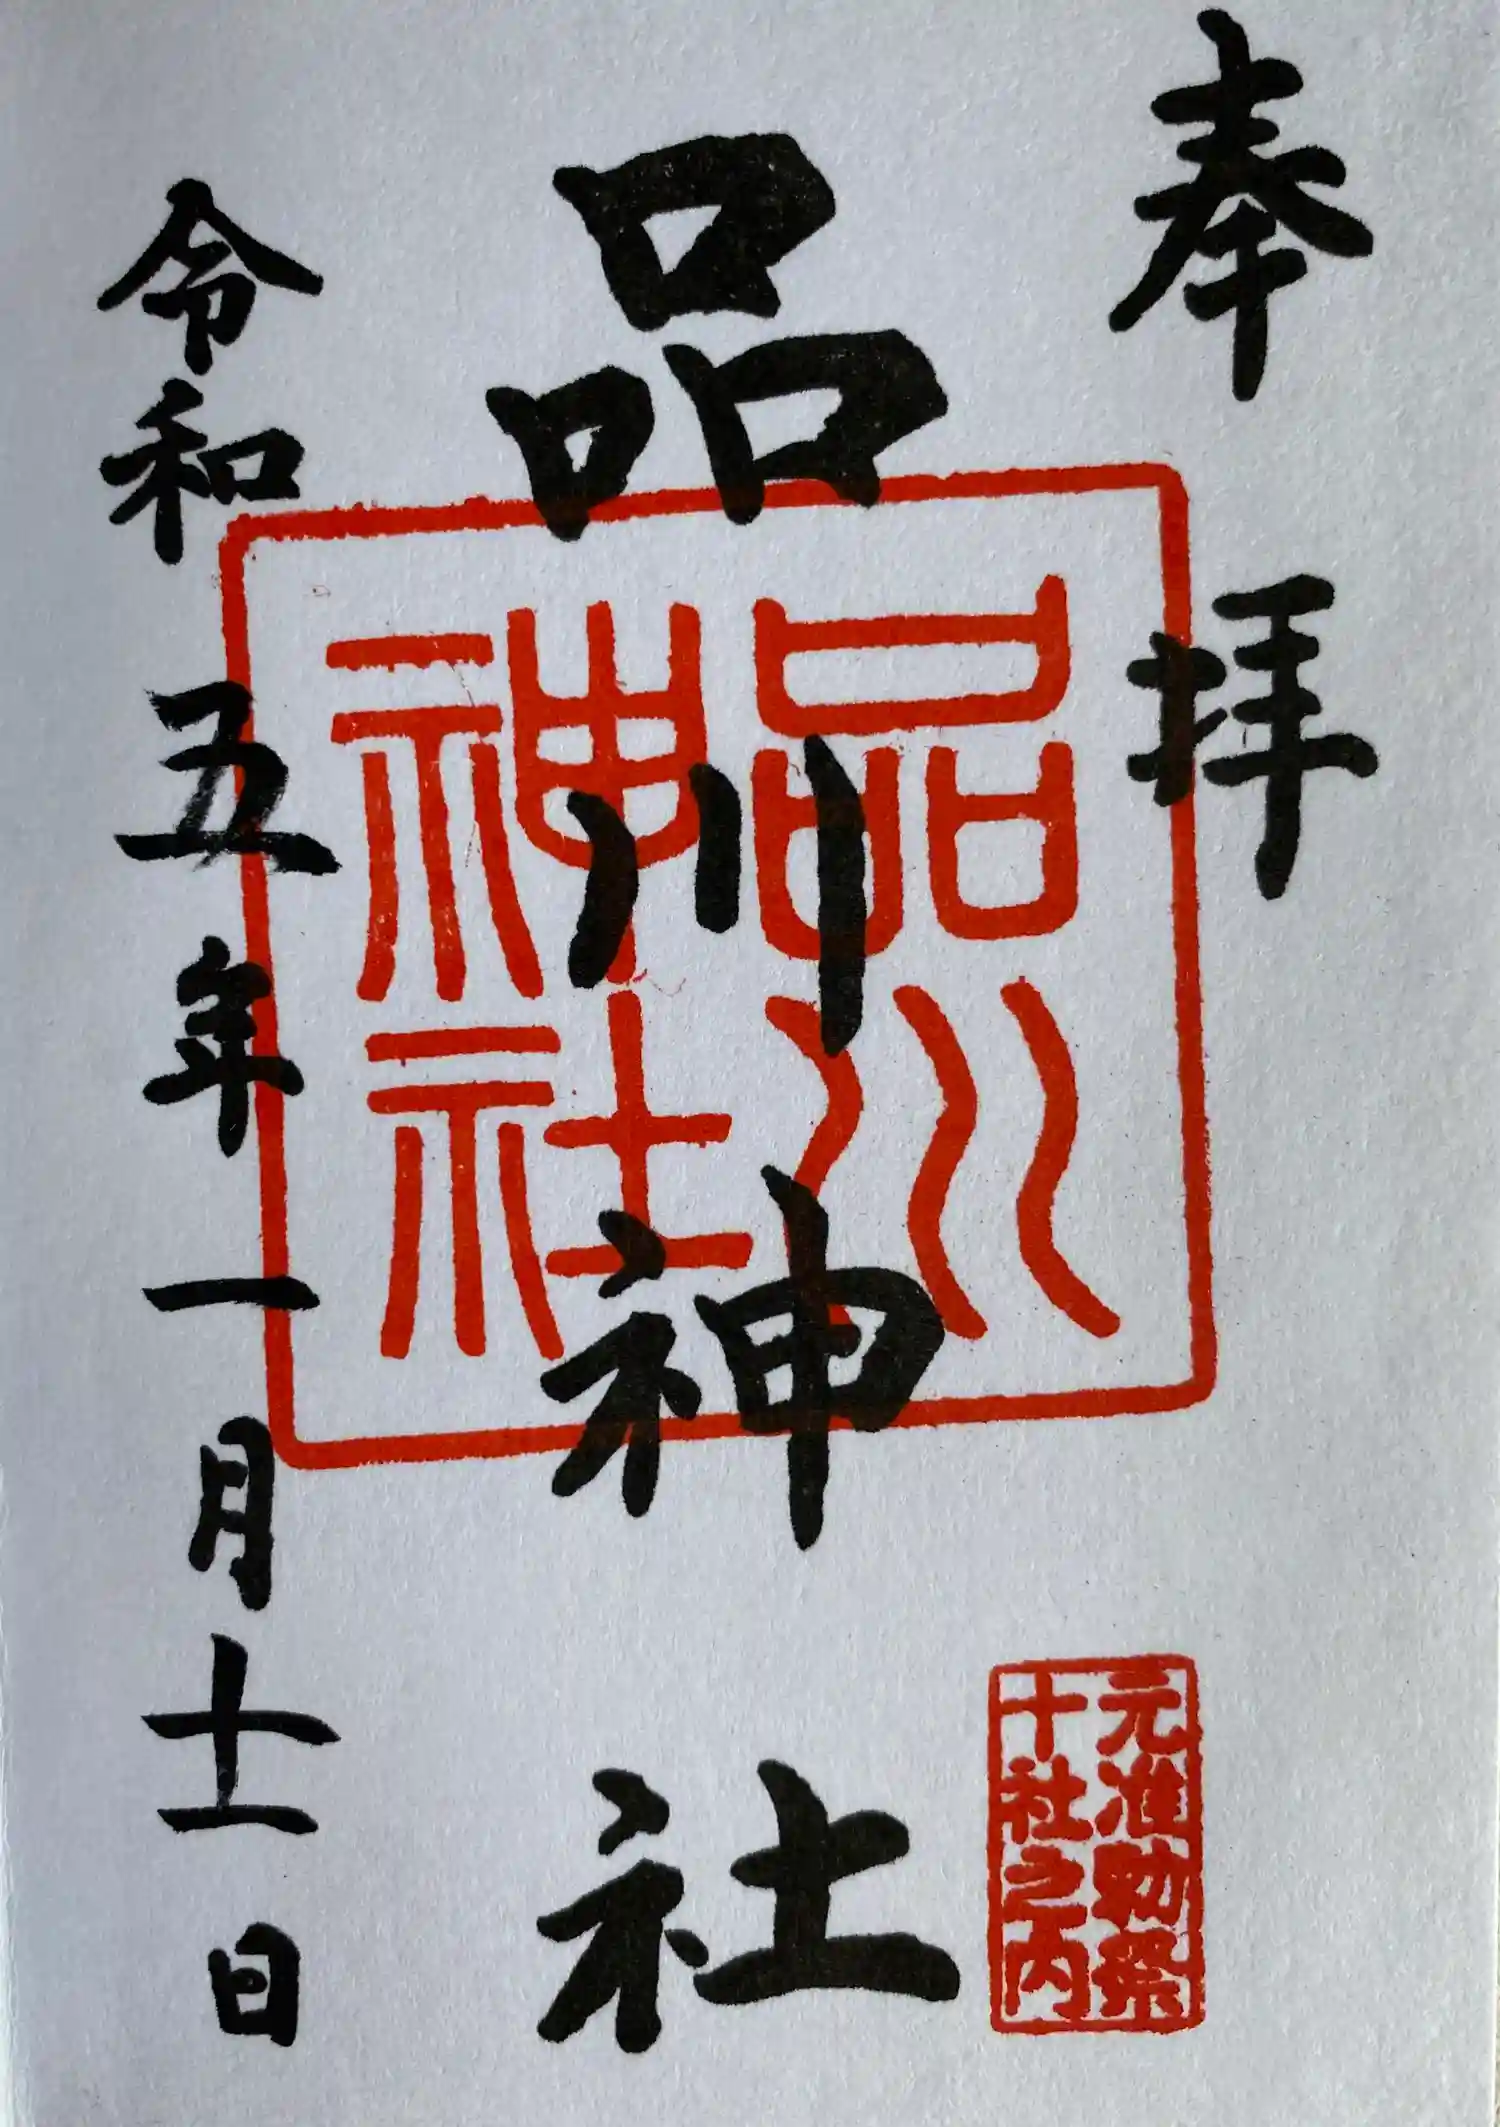 奉拝
品川神社
品川
神社
元准勅祭
十社之内
令和五年一月十一日